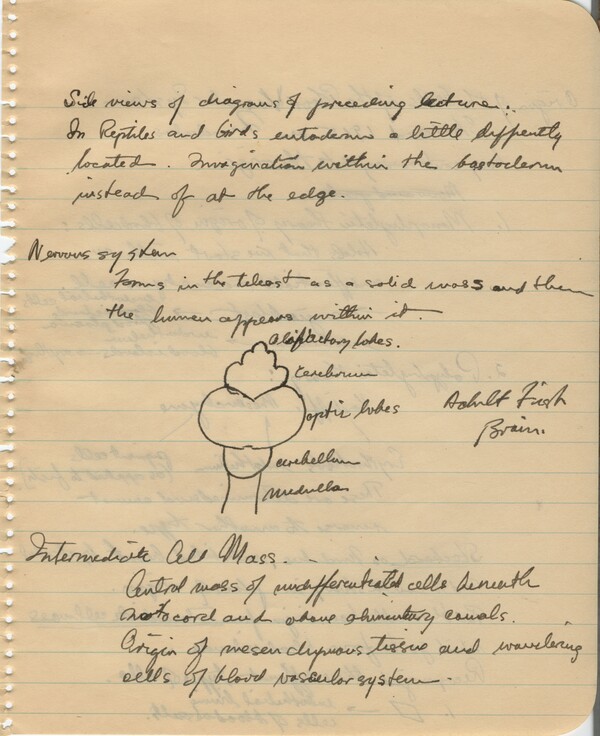 Side views of diagrams of preceding lecture.
In Reptiles and birds entoderm a little diffently
located. Invagination within the bastoderm
instead of at the edge.
Nervous system
Forms in the teleost as a solid mass and then
the lumen appears within it.
olfactory lobes.
cerebrum
optic lobes
Adult Fish
Brain.
cerebellum
medulla
Intermediate Cell Mass.
Central mass of undifferentiated cells beneath
notocord and above alimentary canals.
Origin of mesenchymous tissue and wandering
cells of blood vascular system.